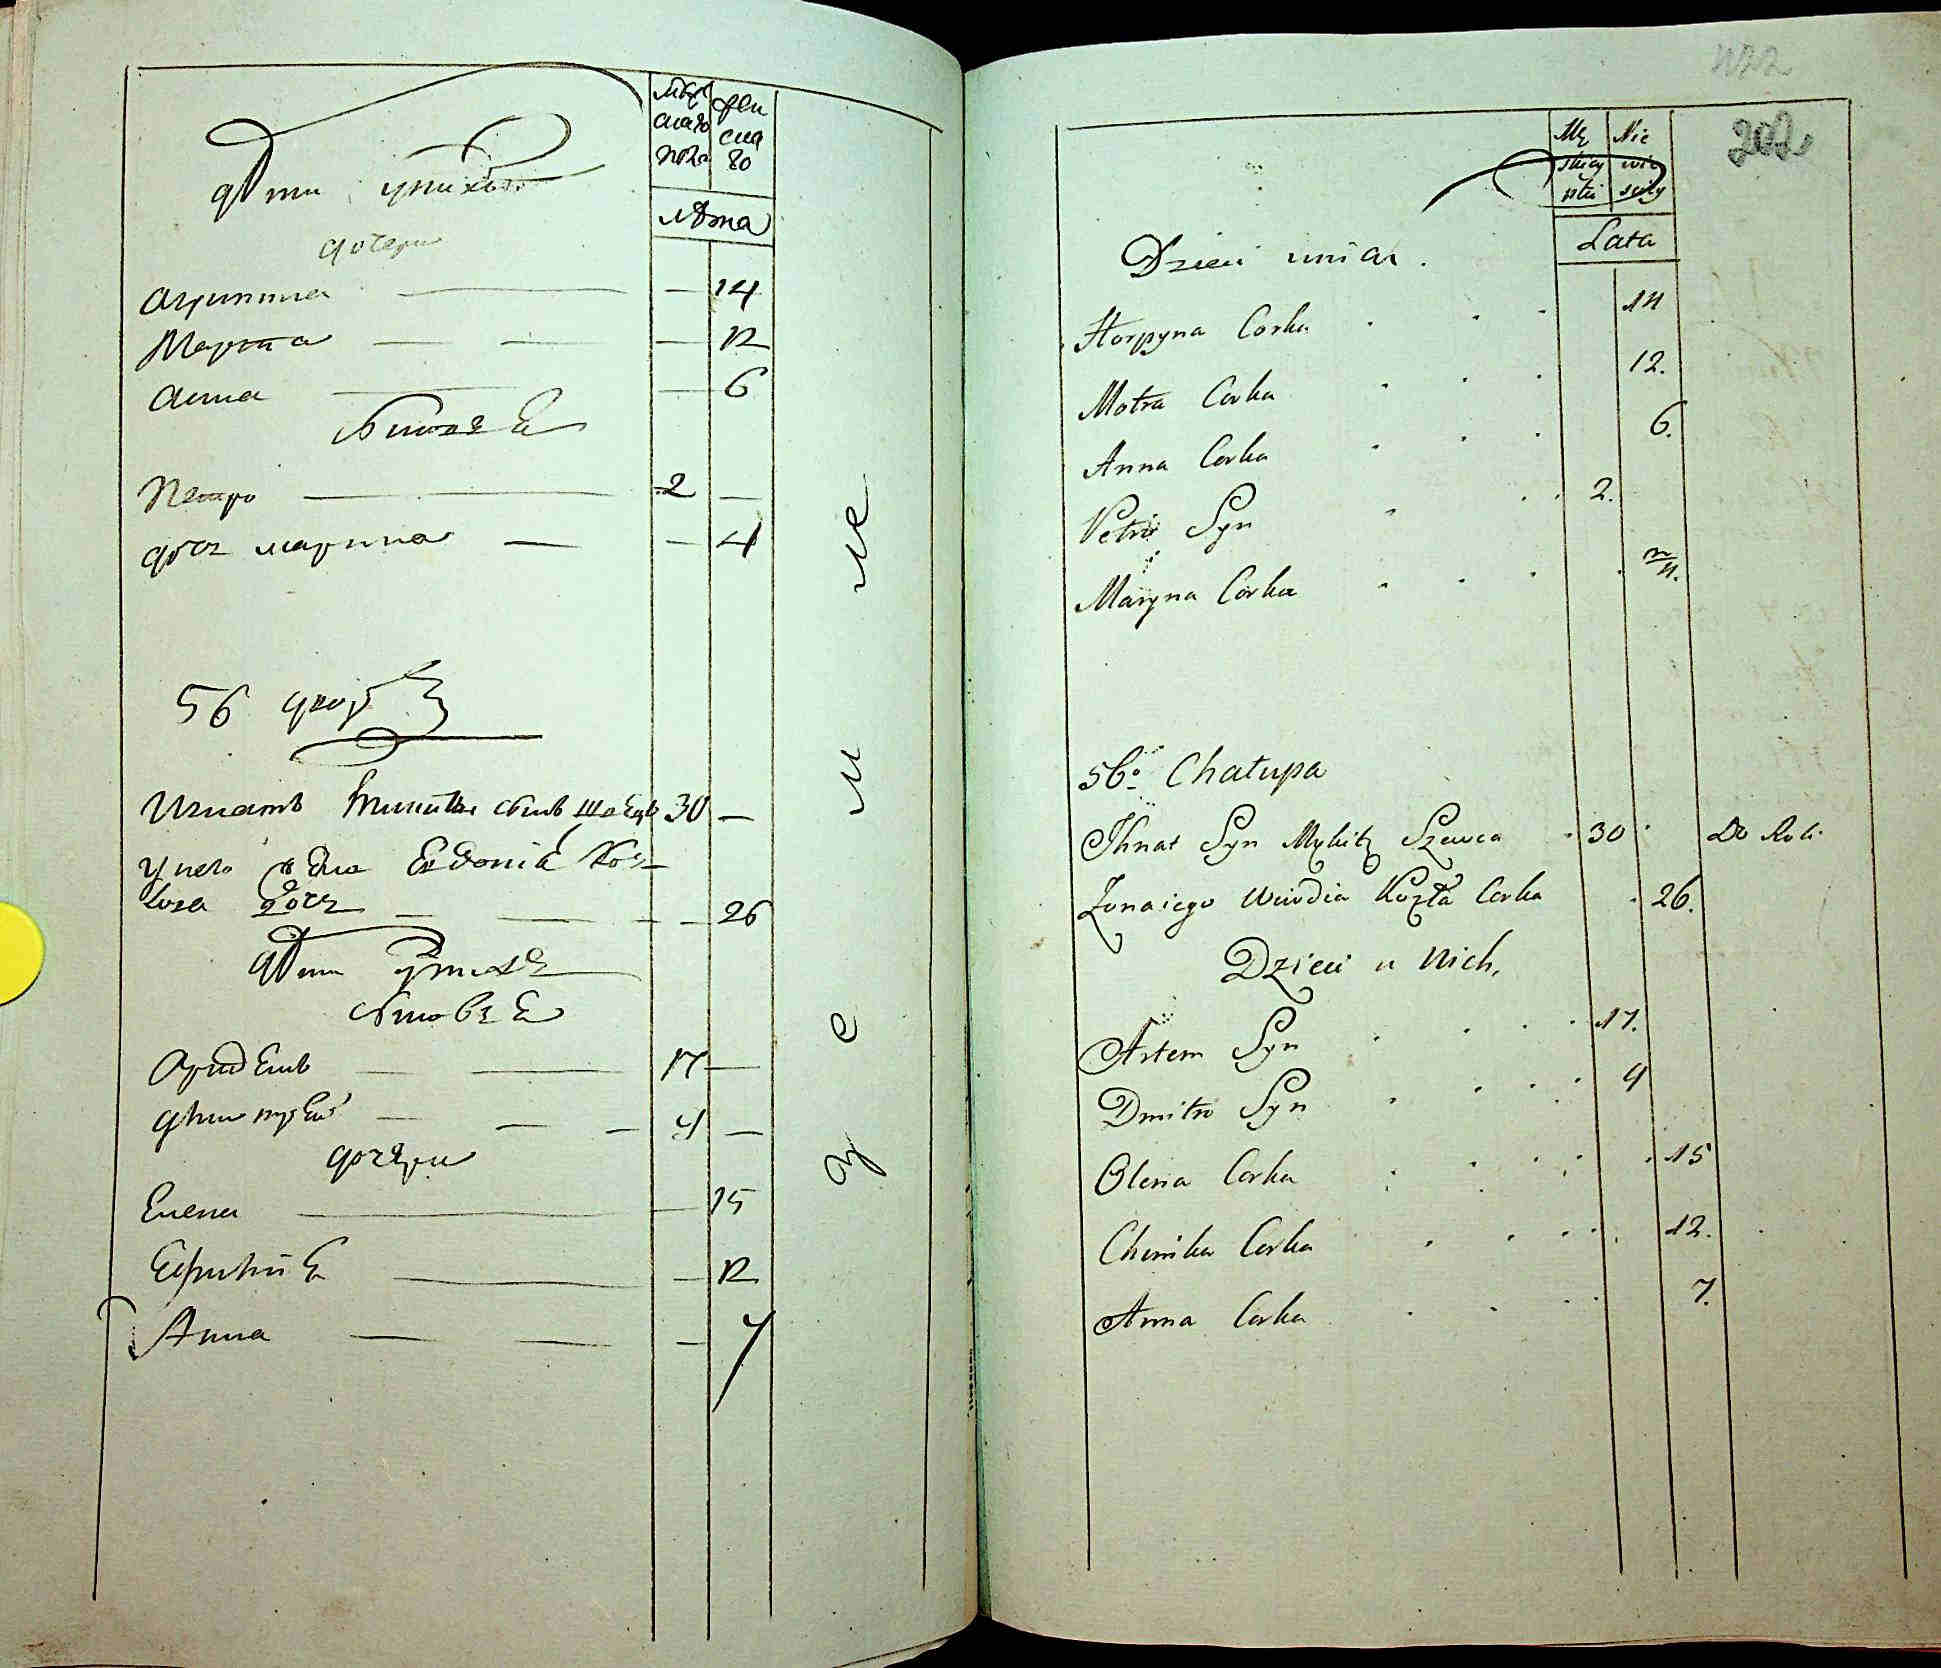 Мужескаго полу
Женскаго
лѣта
дѣти у нихъ
дочери
Агрипина — — 14
Марѳа — — — 12
Анна — — 6
Синовъя
Петро — 2 —
дочь марина — — 4
56 дворъ
Игнатъ Микиты синъ Шевцъ 30 —
у него жена Евдокія Коз-
лова дочь — — — 26
дѣти у нихъ
Синовья
Артемъ — — 17 —
Дмитрій — — — 4 —
дочери
Елена — — 15
Ефимія — — 12
Анна — — — 7
земле
202
Męskiej płci
Niewieściey
Lata
Dzieci u nich.
Horpyna Corka 14
Motra Corka 12.
Anna Corka 6.
Petro Syn 2.
Maryna Corka 4.
56. Chałupa
Ihnat Syn Mykity Szewca 30 Do Roli
Zona iego Wiwdia Kozła Corka 26.
Dzieci u Nich.
Artem Syn 17.
Dmitro Syn 4
Olena Corka 15
Chimka Corka 12.
Anna Corka 7.